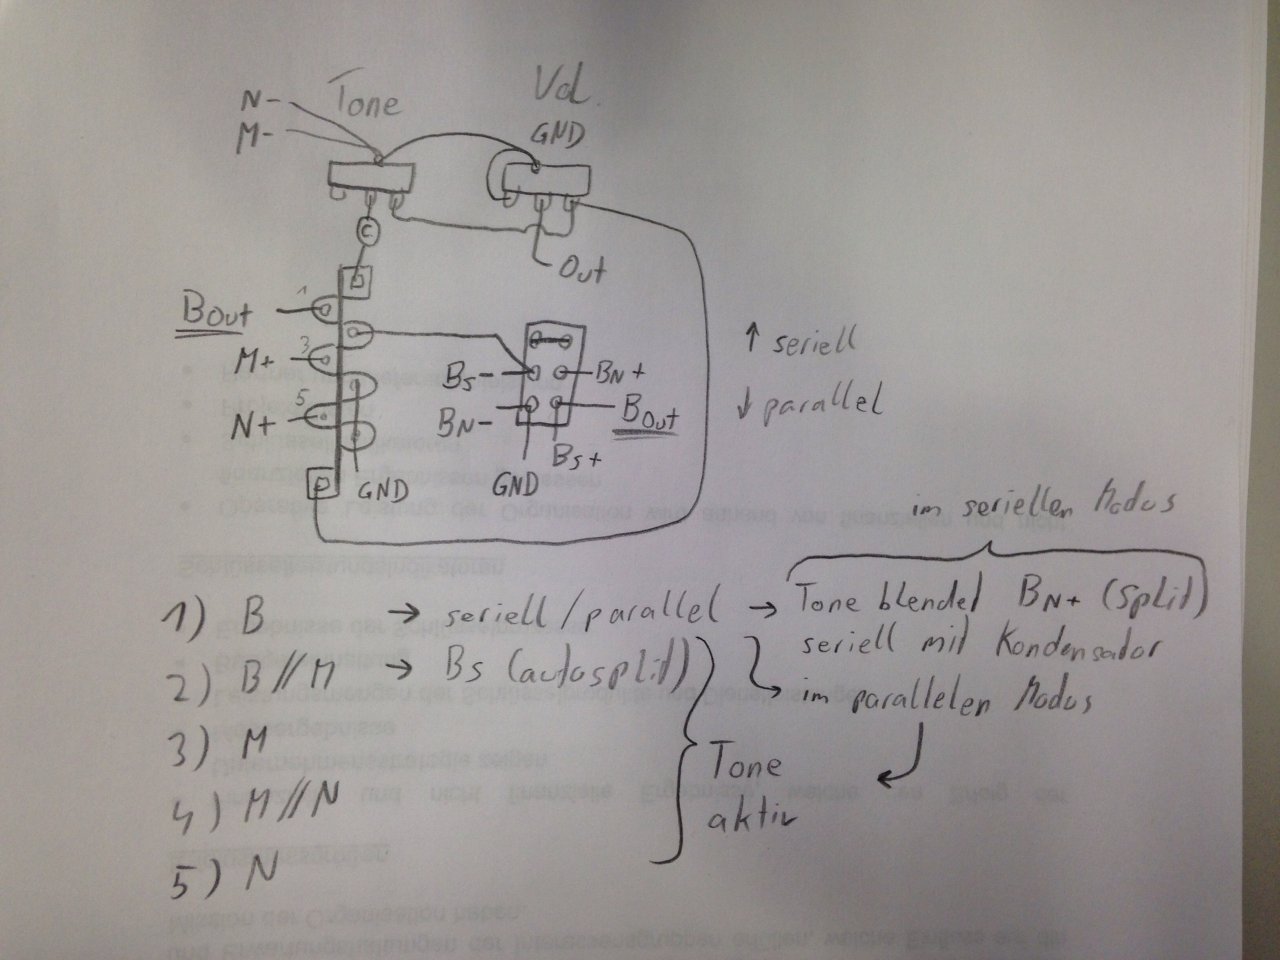 N-
Tone
Vol.
M-
GND
C
Out
1
BOut
3
M+
BS-
BN+
↑ seriell
5
N+
BN-
BOut
↓ parallel
BS+
GND
GND
im seriellen Modus
1) B → seriell/parallel → Tone blendet BN+ (split)
seriell mit Kondensator
2) B//M → BS (autosplit)
im parallelen Modus
3) M
Tone
aktiv
4) M//N
5) N